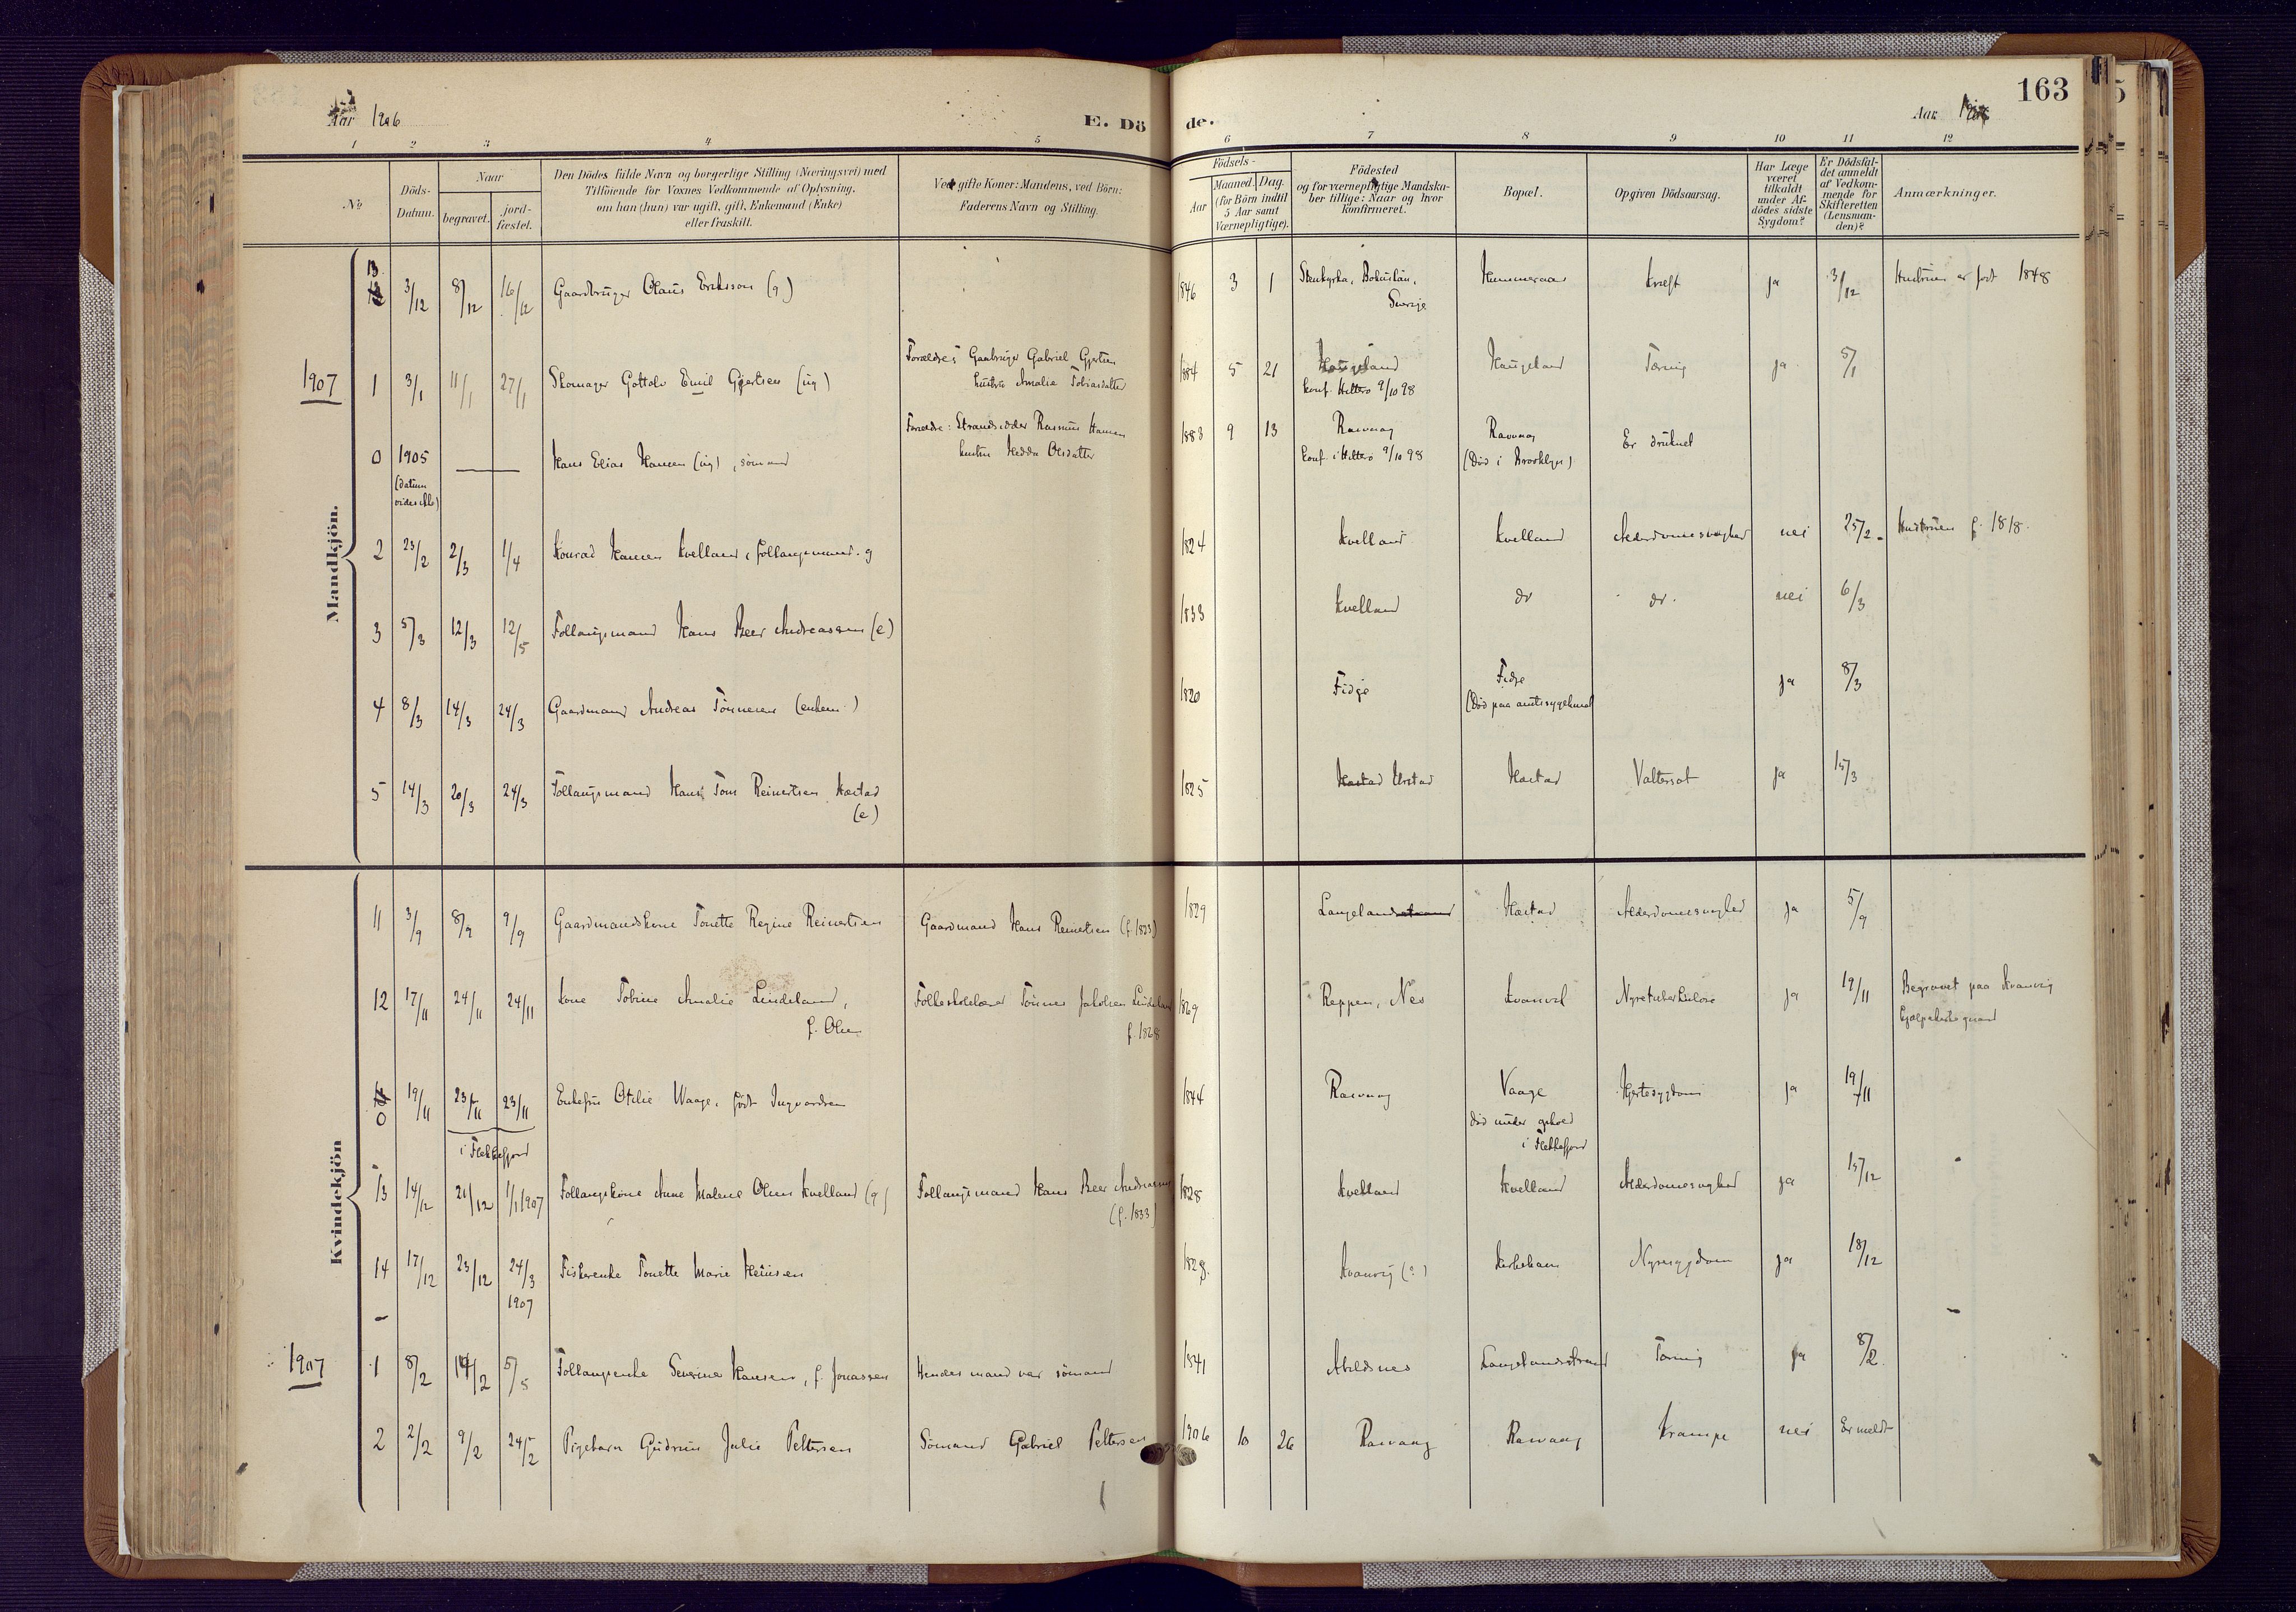 163
Aar 1906
E. Döde.
Aar
1 2 3 4 5 6 7 8 9 10 11 12
No
Döds-Datum.
Naar
begravet.
jord-fæstet.
Den Dödes fulde Navn og borgerlige Stilling (Næringsvei) med
Tilföiende for Voxnes Vedkommende af Oplysning,
om han (hun) var ugift, gift, Enkemand (Enke)
eller fraskilt.
Ved gifte Koner: Mandens, ved Börn:
Faderens Navn og Stilling.
Födsels-
Aar
Maaned. Dag.
(for Börn indtil
5 Aar samt
Værnepligtige).
Födested
og for værnepligtige Mandska-
ber tillige: Naar og hvor
konfirmeret.
Bopæl.
Opgiven Dödsaarsag.
Har Læge
været
tilkaldt
under Af-
dödes sidste
Sygdom?
Er Dödsfal-
det anmeldt
af Vedkom-
mende for
Skifteretten
(Lensman-
den)?
Anmærkninger.
Mandkjön.
13 3/12 8/12 16/12 Gaardbruger Olaus Eriksson (g) 1846 3 1 Stenkyrka, Bohuslän, Hummeraas Kræft ja 3/12 Hustruen er født 1848
Sverige
1907
1 3/1 11/1 27/1 Skomager Gottolv Emil Gjertsen (ug) Forældre: Gaardbruger Gabriel Gjertsen 1884 5 21 Haugeland Haugeland Tæring ja 5/1
hustru Amalie Tobiasdatter konf. Hitterø 9/10 98
0 1905 Hans Elias Hansen (ug), sømand Forældre: Strandsidder Rasmus Hansen 1883 9 13 Rasvaag Rasvaag Er druknet
(datum vides ikke) hustru Hedda Olsdatter konf. i Hitterø 9/10 98 (Død i Brooklyn)
2 23/2 2/3 1/4 Konrad Hansen Kvelland, følaugsmand. g 1824 Kvelland Kvelland Alderdomssvaghed nei 25/2 Hustruen f. 1818.
3 5/3 12/3 12/5 Følaugsmand Hans Peer Andreassen (e) 1833 Kvelland do do. nei 6/3
4 8/3 14/3 24/3 Gaardmand Andreas Tønnesen (enkem.) 1820 Fidje Fidje ja 8/3
(Død paa amtssygehuset
5 14/3 20/3 24/3 Følaugsmand Hans Tom Reinertsen Hæstad 1825 Urstad Hæstad Vattersot ja 15/3
(e)
Kvindekjön
11 3/9 8/9 9/9 Gaardmandskone Tonette Regine Reinertsen Gaardmand Hans Reinertsen (f. 1823) 1829 Langeland Hæstad Alderdomssvaghed ja 5/9
12 17/11 24/11 24/11 Kone Tobine Amalie Lindeland, Folkeskolelærer Tønnes Jakobsen Lindeland 1869 Reppen, Nes Kvanvik Nyretuberkulose ja 19/11 Begravet paa Kvanvig
f. Olsen f. 1868 hjælpekirkegaard
0 19/11 23/11 23/11 Enkefru Otilie Waage, født Ingvardsen 1844 Rasvaag Vaage Hjertesygdom ja 19/11
i Flekkefjord død under ophold
i Flekkefjord
13 14/12 21/12 1/1 1907 Følaugskone Anne Malene Olsen Kvelland (g) Følaugsmand Hans Peer Andreassen 1828 Kvelland Kvelland Alderdomssvaghed ja 15/12
(f. 1833)
14 17/12 23/12 24/3 Fiskerenke Tonette Marie Heinsen 1828. Kvanvig (?) Kirkehavn Nyresygdom ja 18/12
1907
1907
1 8/2 14/2 5/5 Følaugsenke Severine Hansen, f. Jonassen Hendes mand var sømand 1841 Abelsnes Langelandsstrand Tæring ja 8/2
2 2/2 9/2 24/2 Pigebarn Gudrun Julie Pettersen Sømand Gabriel Pettersen 1906 10 26 Rasvaag Rasvaag Krampe nei Er meldt